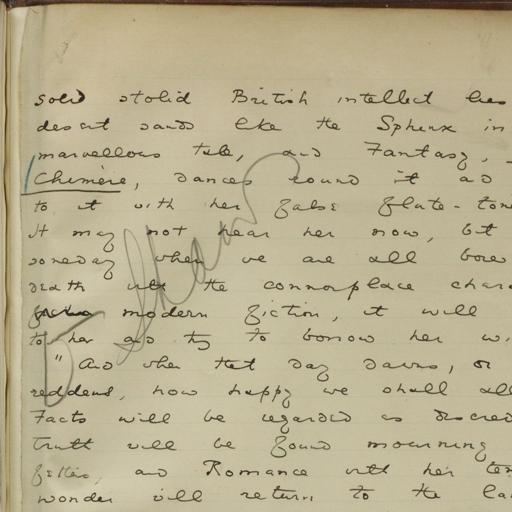 solid stolid British intellect lies
desert sands like the Sphinx in
marvellous tale, and Fantasy,
Chimère, dances round it and
to it with her false flute-tone
It may not hear her now, but
someday when we are all bore
death with the commonplace char
modern fiction, it will
to her and try to borrow her wi
"And when that day dawns, or
reddens, how happy we shall all
Facts will be regarded as discred
truth will be found mourning
fetters, and Romance with her tem
wonder will return to the lan